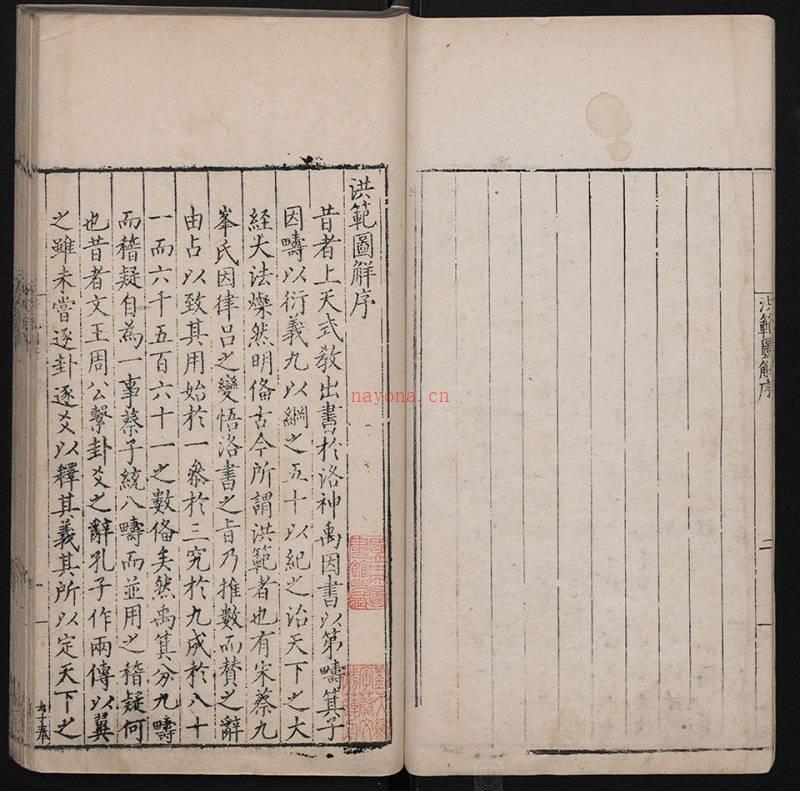 洪範圖解序
昔者上天式教出書於洛神禹因書以第疇箕子
因疇以衍義九以綱之五十以紀之治天下之大
經大法燦然明俻古今所謂洪範者也有宋蔡九
峯氏因律吕之變悟洛書之旨乃推數而賛之辭
由占以致其用始於一叅於三究於九成於八十
一而六千五百六十一之數俻矣然禹箕分九疇
而稽疑自為一事蔡子統八疇而並用之稽疑何
也昔者文王周公繫卦爻之辭孔子作兩傳以翼
之雖未嘗逐卦逐爻以釋其義其所以定天下之
洪範圖解序
二
nayona.cn